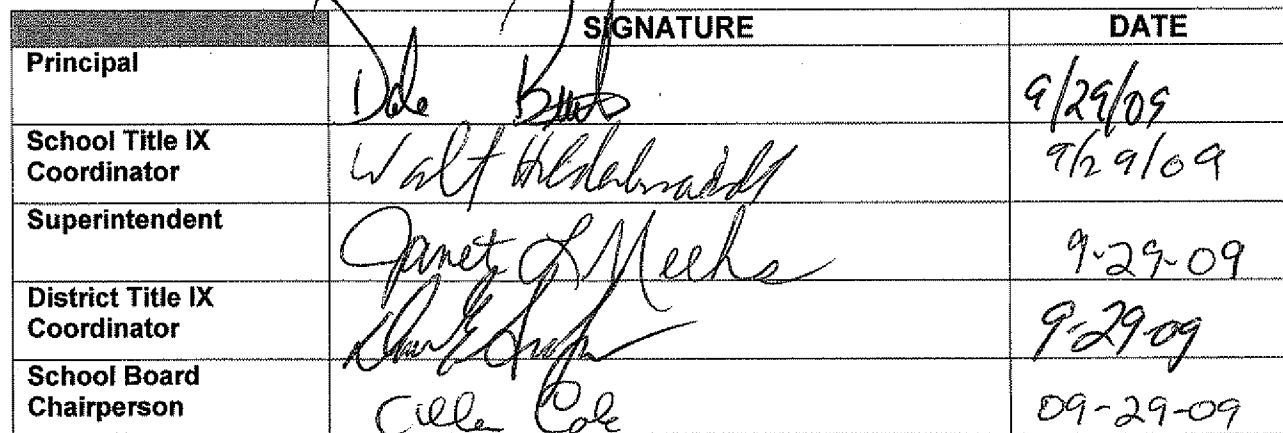 SIGNATURE DATE
Principal Dale 9/29/09
School Title IX
Coordinator Walt Hildebrandt 9/29/09
Superintendent Janet L Meeks 9-29-09
District Title IX
Coordinator 9-29-09
School Board
Chairperson Cole 09-29-09